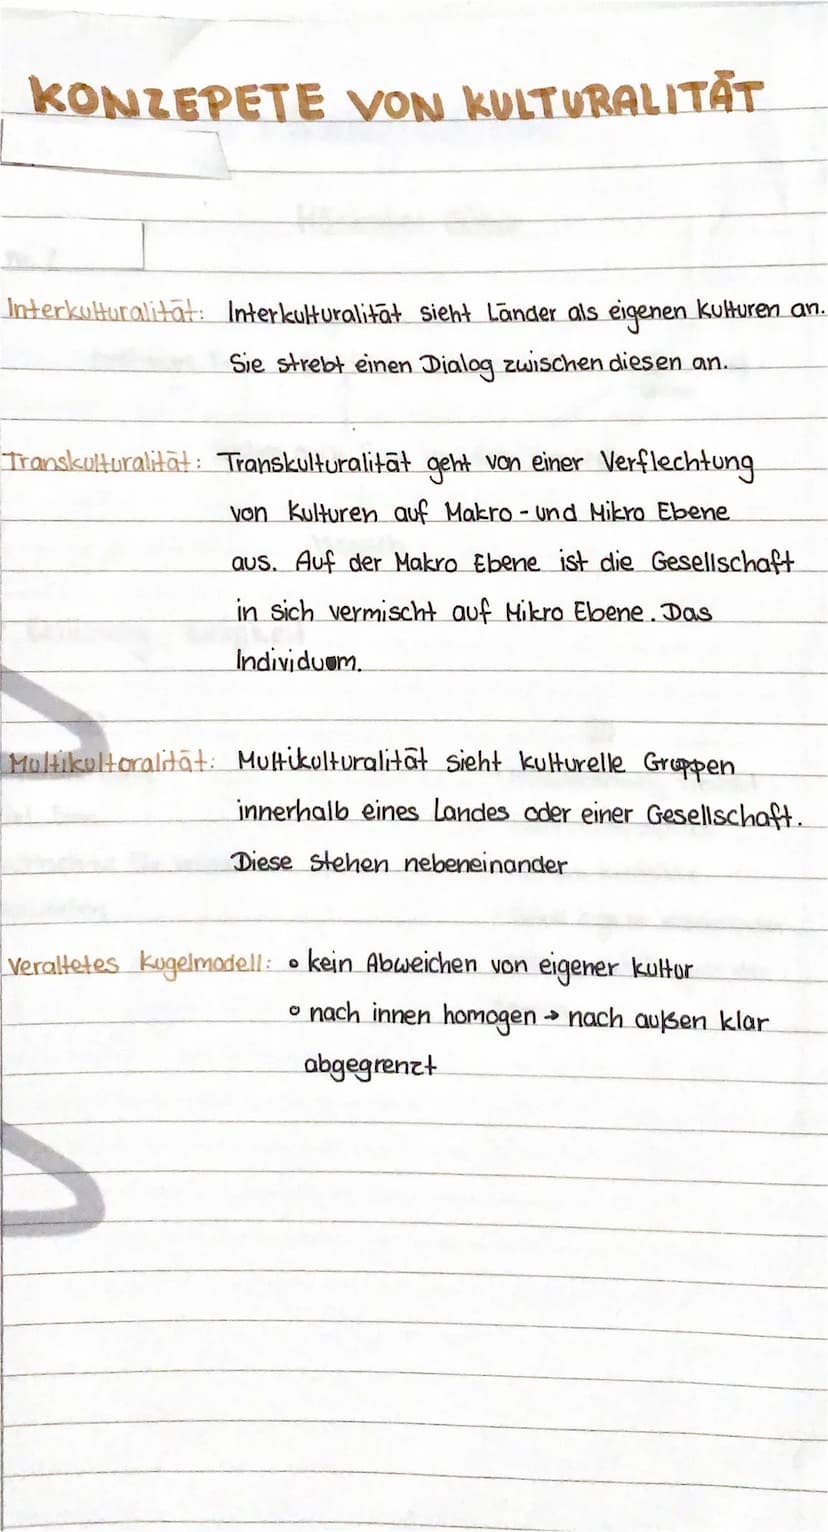 KONZEPETE VON KULTURALITÄT
Interkulturalität: Interkulturalität sieht Länder als eigenen Kulturen an.
Sie strebt einen Dialog zwischen diesen an.
Transkulturalität: Transkulturalität geht von einer Verflechtung
von Kulturen auf Makro - und Mikro Ebene
aus. Auf der Makro Ebene ist die Gesellschaft
in sich vermischt auf Mikro Ebene. Das
Individuum.
Multikulturalität: Multikulturalität sieht kulturelle Gruppen
innerhalb eines Landes oder einer Gesellschaft.
Diese stehen nebeneinander
Veraltetes Kugelmodell: • kein Abweichen von eigener Kultur
• nach innen homogen → nach außen klar
abgegrenzt